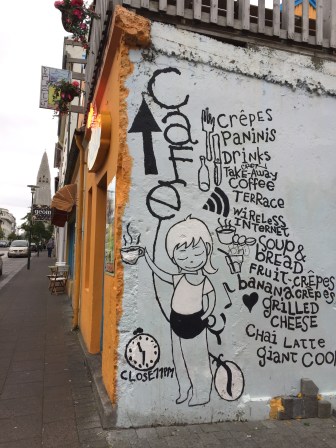 Café
CRÊPES
PANINIS
DRINKS
TAKE-AWAY
COFFEE
TERRACE
WIRELESS
INTERNET
SOUP &
BREAD
FRUIT-CRÊPES
BANANACRÊPES
GRILLED
CHEESE
CHAI LATTE
GIANT COO
CLOSE 11PM